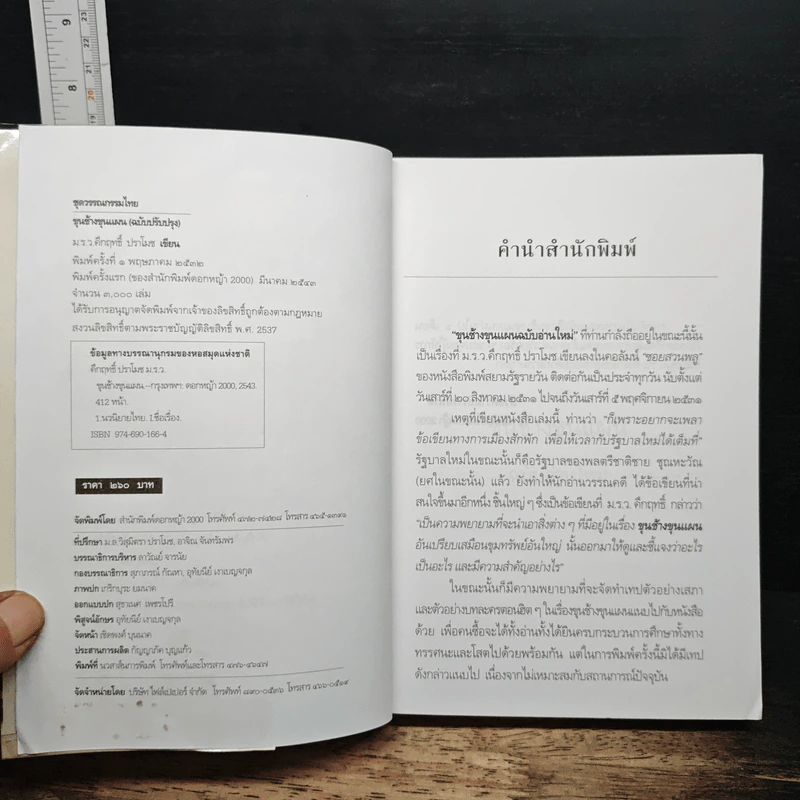 9
8
23
22
21
20
19
ชุดวรรณกรรมไทย
ขุนช้างขุนแผน (ฉบับปรับปรุง)
ม.ร.ว.คึกฤทธิ์ ปราโมช เขียน
พิมพ์ครั้งที่ ๑ พฤษภาคม ๒๕๓๒
พิมพ์ครั้งแรก (ของสำนักพิมพ์ดอกหญ้า 2000) มีนาคม ๒๕๔๓
จำนวน ๓,๐๐๐ เล่ม
ได้รับการอนุญาตจัดพิมพ์จากเจ้าของลิขสิทธิ์ถูกต้องตามกฎหมาย
สงวนลิขสิทธิ์ตามพระราชบัญญัติลิขสิทธิ์ พ.ศ. 2537
ข้อมูลทางบรรณานุกรมของหอสมุดแห่งชาติ
คึกฤทธิ์ ปราโมช ม.ร.ว.
ขุนช้างขุนแผน.--กรุงเทพฯ: ดอกหญ้า 2000, 2543.
412 หน้า.
1.นวนิยายไทย. I.ชื่อเรื่อง.
ISBN 974-690-166-4
ราคา ๒๖๐ บาท
จัดพิมพ์โดย สำนักพิมพ์ดอกหญ้า 2000 โทรศัพท์ ๔๗๒-๗๔๒๘ โทรสาร ๔๖๕-๑๓๙๖
ที่ปรึกษา ม.ล.วิสุมิตรา ปราโมช, อาจิณ จันทรัมพร
บรรณาธิการบริหาร ลาวัณย์ จารนัย
กองบรรณาธิการ สุภาภรณ์ กัณหา, อุทัยนีย์ เงาเบญจกุล
ภาพปก เกริกบุระ ยมนาค
ออกแบบปก สุชาเนศ เพชรโปรี
พิสูจน์อักษร อุทัยนีย์ เงาเบญจกุล
จัดหน้า เชิดพงศ์ บุนนาค
ประสานการผลิต กัญญาภัค บุญแก้ว
พิมพ์ที่ นวสาส์นการพิมพ์ โทรศัพท์และโทรสาร ๔๗๖-๔๖๔๗
จัดจำหน่ายโดย บริษัท ไฟล์เปเปอร์ จำกัด โทรศัพท์ ๘๙๐-๐๕๓๖ โทรสาร ๔๖๖-๐๕๑๙
คำนำสำนักพิมพ์
"ขุนช้างขุนแผนฉบับอ่านใหม่" ที่ท่านกำลังถืออยู่ในขณะนี้นั้น
เป็นเรื่องที่ ม.ร.ว.คึกฤทธิ์ ปราโมช เขียนลงในคอลัมน์ "ซอยสวนพลู"
ของหนังสือพิมพ์สยามรัฐรายวัน ติดต่อกันเป็นประจำทุกวัน นับตั้งแต่
วันเสาร์ที่ ๒๐ สิงหาคม ๒๕๓๑ ไปจนถึงวันเสาร์ที่ ๕ พฤศจิกายน ๒๕๓๑
เหตุที่เขียนหนังสือเล่มนี้ ท่านว่า "ก็เพราะอยากจะเพลา
ข้อเขียนทางการเมืองสักพัก เพื่อให้เวลากับรัฐบาลใหม่ได้เต็มที่"
รัฐบาลใหม่ในขณะนั้นก็คือรัฐบาลของพลตรีชาติชาย ชุณหะวัณ
(ยศในขณะนั้น) แล้ว ยังทำให้นักอ่านวรรณคดี ได้ข้อเขียนที่น่า
สนใจขึ้นมาอีกหนึ่ง ชิ้นใหญ่ ๆ ซึ่งเป็นข้อเขียนที่ ม.ร.ว. คึกฤทธิ์ กล่าวว่า
"เป็นความพยายามที่จะนำเอาสิ่งต่าง ๆ ที่มีอยู่ในเรื่อง ขุนช้างขุนแผน
อันเปรียบเสมือนขุมทรัพย์อันใหญ่ นั้นออกมาให้ดูและชี้แจงว่าอะไร
เป็นอะไร และมีความสำคัญอย่างไร"
ในขณะนั้นก็มีความพยายามที่จะจัดทำเทปตัวอย่างเสภา
และตัวอย่างบทละครตอนฮิต ๆ ในเรื่องขุนช้างขุนแผนแนบไปกับหนังสือ
ด้วย เพื่อคนซื้อจะได้ทั้งอ่านทั้งได้ยินครบกระบวนการศึกษาทั้งทาง
ทรรศนะและโสตไปด้วยพร้อมกัน แต่ในการพิมพ์ครั้งนี้มิได้มีเทป
ดังกล่าวแนบไป เนื่องจากไม่เหมาะสมกับสถานการณ์ปัจจุบัน